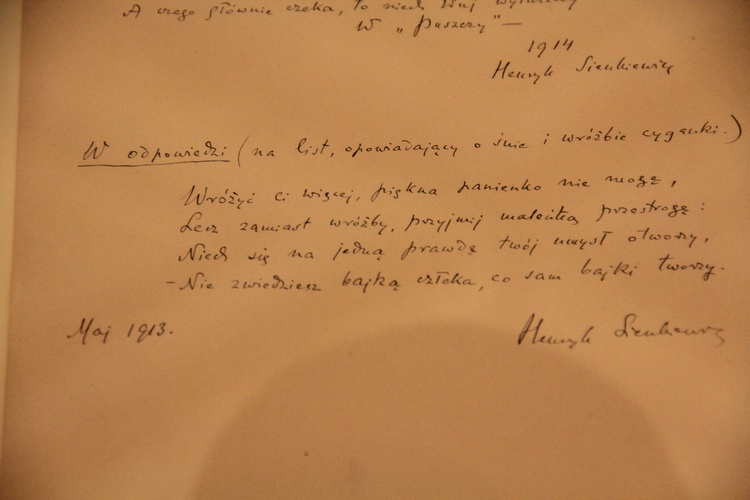 A czego głównie czeka, to niech Twój
W „Puszczy” —
1914
Henryk Sienkiewicz
W odpowiedzi (na list, opowiadający o śnie i wróżbie cyganki.)
Wróżyć ci więcej, piękna panienko nie mogę,
Lecz zamiast wróżby, przyjmij maleńką przestrogę:
Niech się na jedną prawdę twój umysł otworzy,
– Nie zwiedziesz bajką człeka, co sam bajki tworzy.
Maj 1913.
Henryk Sienkiewicz